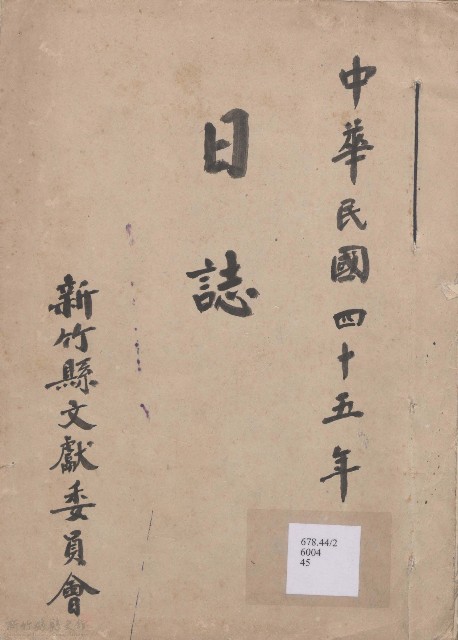 中華民國四十五年
日誌
新竹縣文獻委員會
678.44/2
6004
45